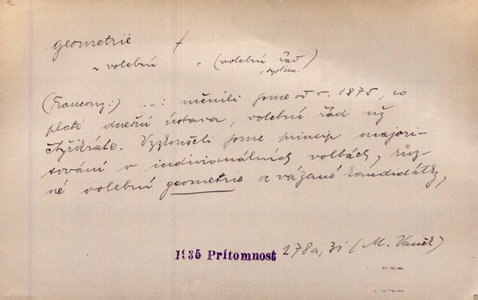 geometrie f
~ volební " (volební řád
, systém)
(Francouz.) ...: měnili jsme od r. 1875, co
platí dnešní ústava, volební řád už
čtyřikráte. Vyzkoušeli jsme princip majori-
sování v individuálních volbách, růz-
né volební geometrie a vázané kandidátky,
1935 Prítomnost 278a, 31 (M. Vaněk)